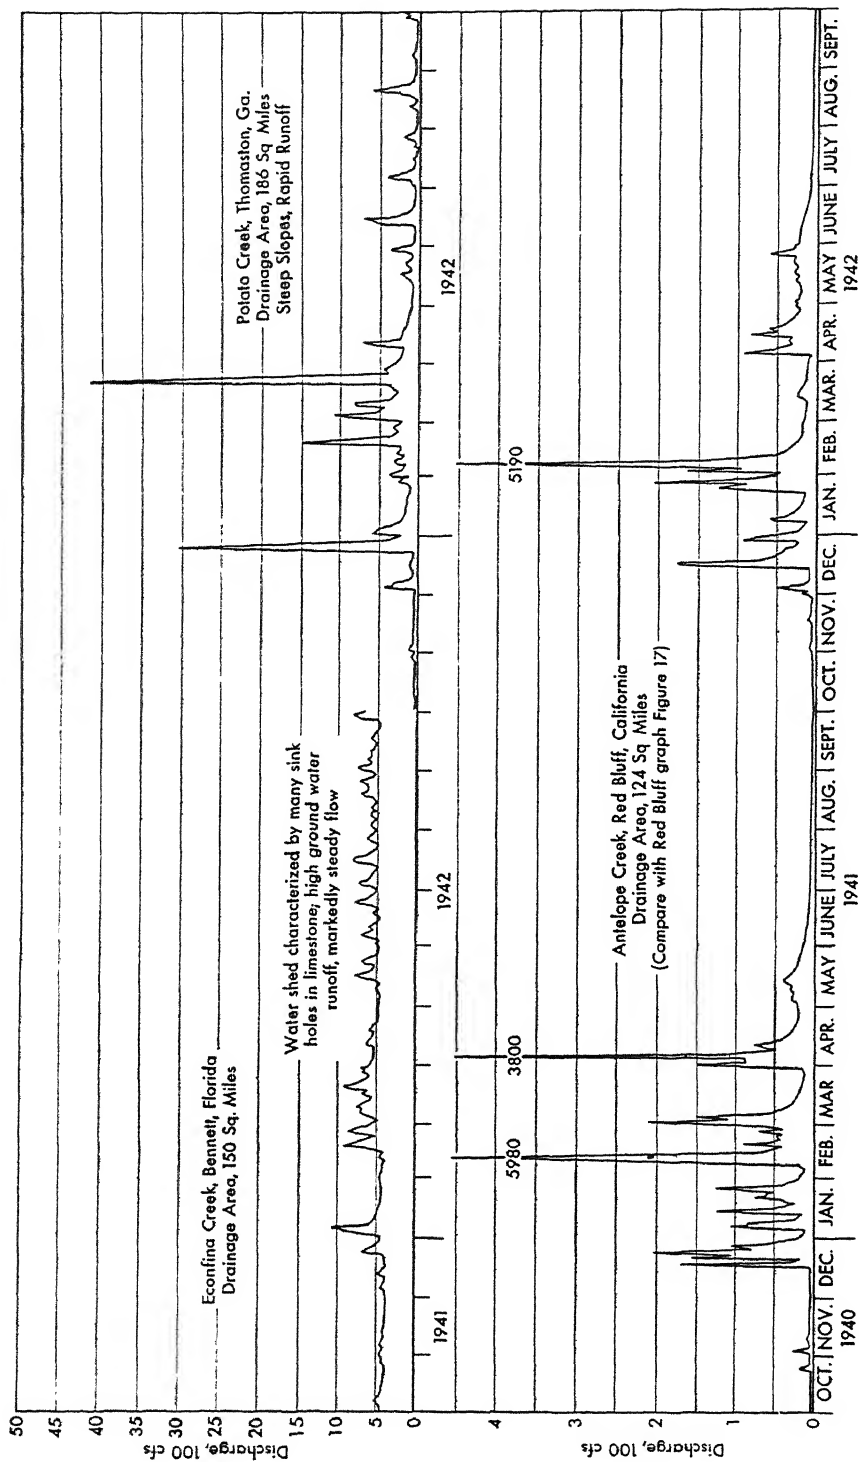 Discharge, 100 cfs
50
45
40
35
30
25
20
15
10
5
0
Econfina Creek, Bennett, Florida
Drainage Area, 150 Sq. Miles
Water shed characterized by many sink
holes in limestone; high ground water
runoff, markedly steady flow
Potato Creek, Thomaston, Ga.
Drainage Area, 186 Sq Miles
Steep Slopes, Rapid Runoff
1941
1942
1942
Discharge, 100 cfs
4
3
2
1
0
5980
3800
5190
Antelope Creek, Red Bluff, California
Drainage Area, 124 Sq Miles
(Compare with Red Bluff graph Figure 17)
OCT. NOV. DEC. JAN. FEB. MAR APR. MAY JUNE JULY AUG. SEPT. OCT. NOV. DEC. JAN. FEB. MAR. APR. MAY JUNE JULY AUG. SEPT.
1940 1941 1942